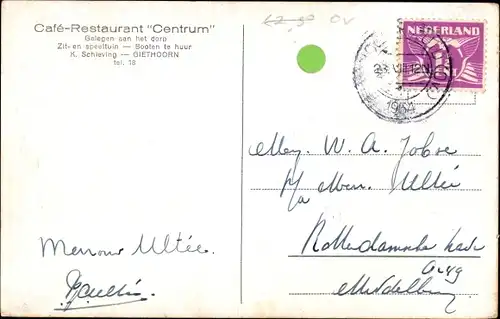 Café-Restaurant "Centrum"
Gelegen aan het dorp
Zit- en speeltuin — Booten te huur
K. Schieving — GIETHOORN
tel. 18
£2,50 OV
NEDERLAND
23 VII 12
Mej. W. A. Jobse
p/a Mevr. Ultée
Rotterdamsche kade
Middelburg
Mevrouw Ultée.